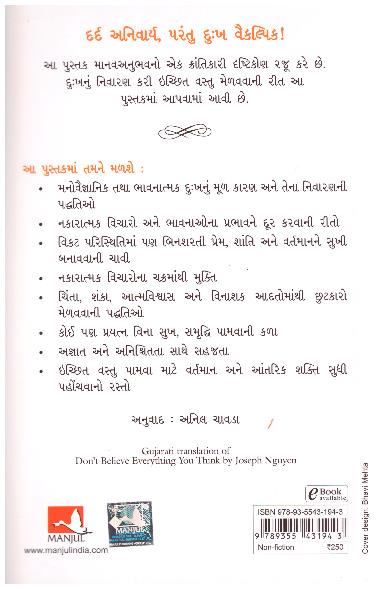 દર્દ અનિવાર્ય, પરંતુ દુઃખ વૈકલ્પિક!
આ પુસ્તક માનવઅનુભવનો એક ક્રાંતિકારી દૃષ્ટિકોણ રજૂ કરે છે.
દુઃખનું નિવારણ કરી ઇચ્છિત વસ્તુ મેળવવાની રીત આ
પુસ્તકમાં આપવામાં આવી છે.
આ પુસ્તકમાં તમને મળશે :
• મનોવૈજ્ઞાનિક તથા ભાવનાત્મક દુઃખનું મૂળ કારણ અને તેના નિવારણની
પદ્ધતિઓ
• નકારાત્મક વિચારો અને ભાવનાઓના પ્રભાવને દૂર કરવાની રીતો
• વિકટ પરિસ્થિતિમાં પણ બિનશરતી પ્રેમ, શાંતિ અને વર્તમાનને સુખી
બનાવવાની ચાવી
• નકારાત્મક વિચારોના ચક્રમાંથી મુક્તિ
• ચિંતા, શંકા, આત્મવિશ્વાસ અને વિનાશક આદતોમાંથી છુટકારો
મેળવવાની પદ્ધતિઓ
• કોઈ પણ પ્રયત્ન વિના સુખ, સમૃદ્ધિ પામવાની કળા
• અજ્ઞાત અને અનિશ્ચિતતા સાથે સહજતા
• ઇચ્છિત વસ્તુ પામવા માટે વર્તમાન અને આંતરિક શક્તિ સુધી
પહોંચવાનો રસ્તો
અનુવાદ : અનિલ ચાવડા
Gujarati translation of
Don't Believe Everything You Think by Joseph Nguyen
eBook
available
ISBN 978-93-5543-194-3
9 789355 431943
Non-fiction ₹250
MANJUL
www.manjulindia.com
MANJUL
Cover design: Bhavi Mehta